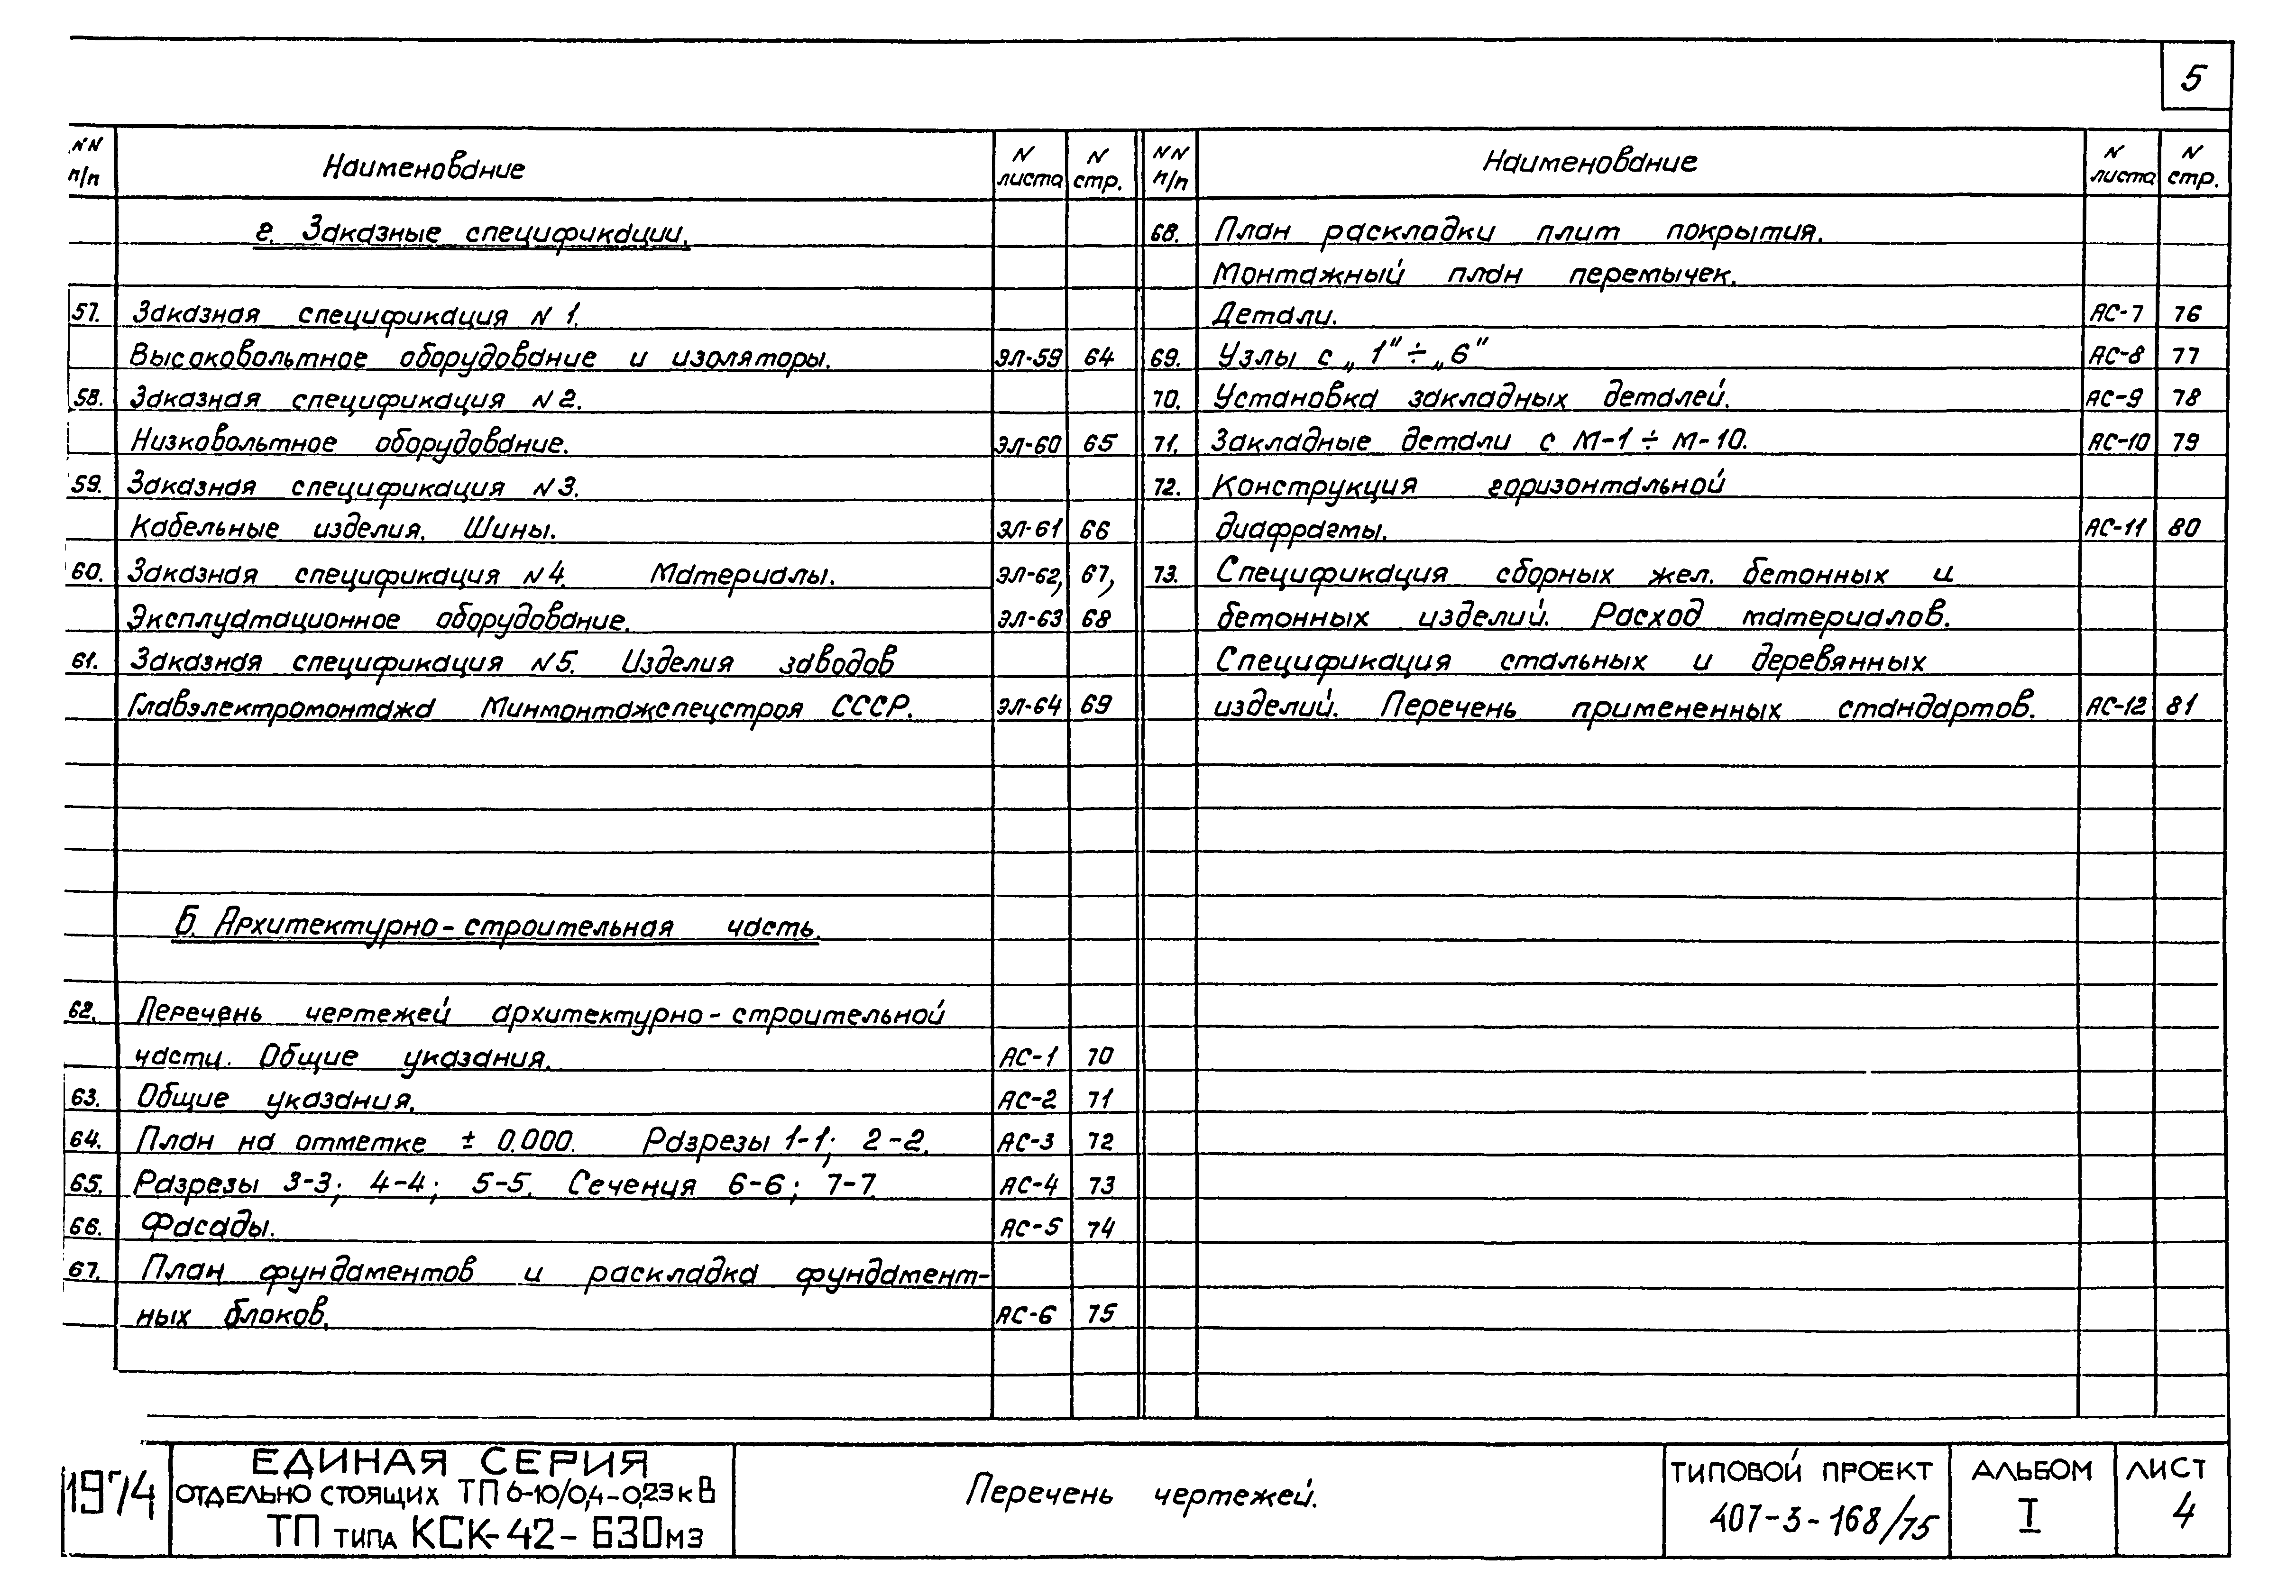 5
NN п/п Наименование N листа N стр.
г. Заказные спецификации.
57. Заказная спецификация N 1.
Высоковольтное оборудование и изоляторы. ЭЛ-59 64
58. Заказная спецификация N2.
Низковольтное оборудование. ЭЛ-60 65
59. Заказная спецификация N3.
Кабельные изделия. Шины. ЭЛ-61 66
60. Заказная спецификация N4. Материалы. ЭЛ-62, 67,
Эксплуатационное оборудование. ЭЛ-63 68
61. Заказная спецификация N5. Изделия заводов
Главэлектромонтажа Минмонтажспецстроя СССР. ЭЛ-64 69
Б. Архитектурно-строительная часть.
62. Перечень чертежей архитектурно-строительной
части. Общие указания. АС-1 70
63. Общие указания. АС-2 71
64. План на отметке ± 0.000. Разрезы 1-1; 2-2. АС-3 72
65. Разрезы 3-3; 4-4; 5-5. Сечения 6-6; 7-7. АС-4 73
66. Фасады. АС-5 74
67. План фундаментов и раскладка фундамент-
ных блоков. АС-6 75
NN п/п Наименование N листа N стр.
68. План раскладки плит покрытия.
Монтажный план перемычек.
Детали. АС-7 76
69. Узлы с „1" ÷ „6" АС-8 77
70. Установка закладных деталей. АС-9 78
71. Закладные детали с М-1 ÷ М-10. АС-10 79
72. Конструкция горизонтальной
диафрагмы. АС-11 80
73. Спецификация сборных жел. бетонных и
бетонных изделий. Расход материалов.
Спецификация стальных и деревянных
изделий. Перечень примененных стандартов. АС-12 81
1974
ЕДИНАЯ СЕРИЯ
ОТДЕЛЬНО СТОЯЩИХ ТП 6-10/0,4-0,23кВ
ТП ТИПА КСК-42-630м3
Перечень чертежей.
ТИПОВОЙ ПРОЕКТ
407-3-168/75
АЛЬБОМ
I
ЛИСТ
4